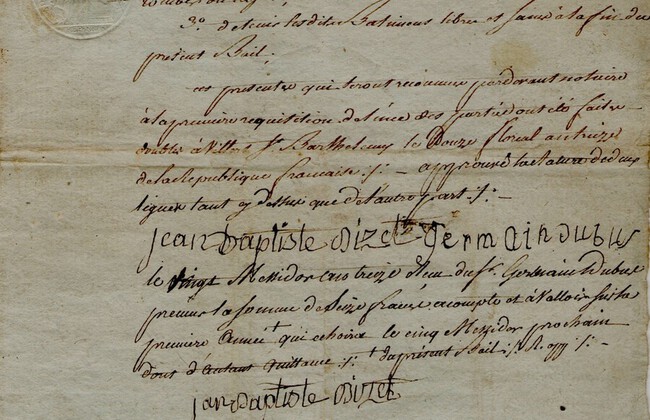 3º de rendre lesdits Batimens libre et saine à la fin du
présent Bail.
ces présentes qui seront reconnue pardevant notaire
à la première requisition de l'une des partie ont été faite
double à Villers St. Barthelemy le Douze floreal an treize
de la Republique française ./. approuvé la rature de deux
lignes tant cy dessus que de l'autre part ./.
jean baptiste Dizet germain dubus
le vingt Messidor an treize Reçu du Sr. Germain Dubus
preneur la somme de seize francs acompte et à Valloir sur la
première année † qui echoira le cinq Messidor prochain
dont d'autant quittance ./. † du présent Bail ./.
jan baptiste Dizet